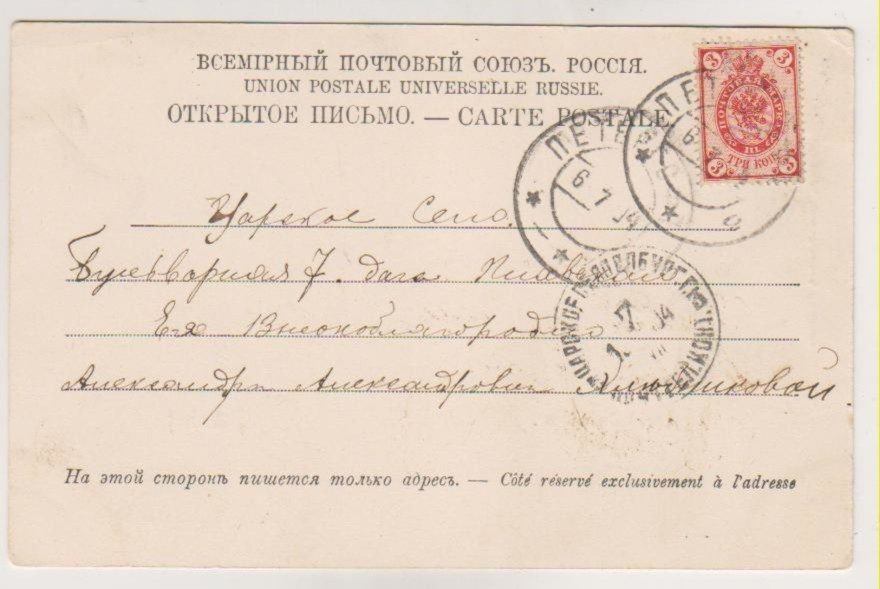 ВСЕМІРНЫЙ ПОЧТОВЫЙ СОЮЗЪ. РОССІЯ.
UNION POSTALE UNIVERSELLE RUSSIE.
ОТКРЫТОЕ ПИСЬМО. — CARTE POSTALE.
3 3
ПОЧТОВАЯ МАРКА
ТРИ КОП.
3 3
ПЕТЕР
6 7 04
ПЕТ
6
Царское Село.
Бульварная 7. дача
Ея Высокоблагородію
Александрѣ Александровнѣ
ЦАРСКОЕ
04
На этой сторонѣ пишется только адресъ. — Côté réservé exclusivement à l'adresse